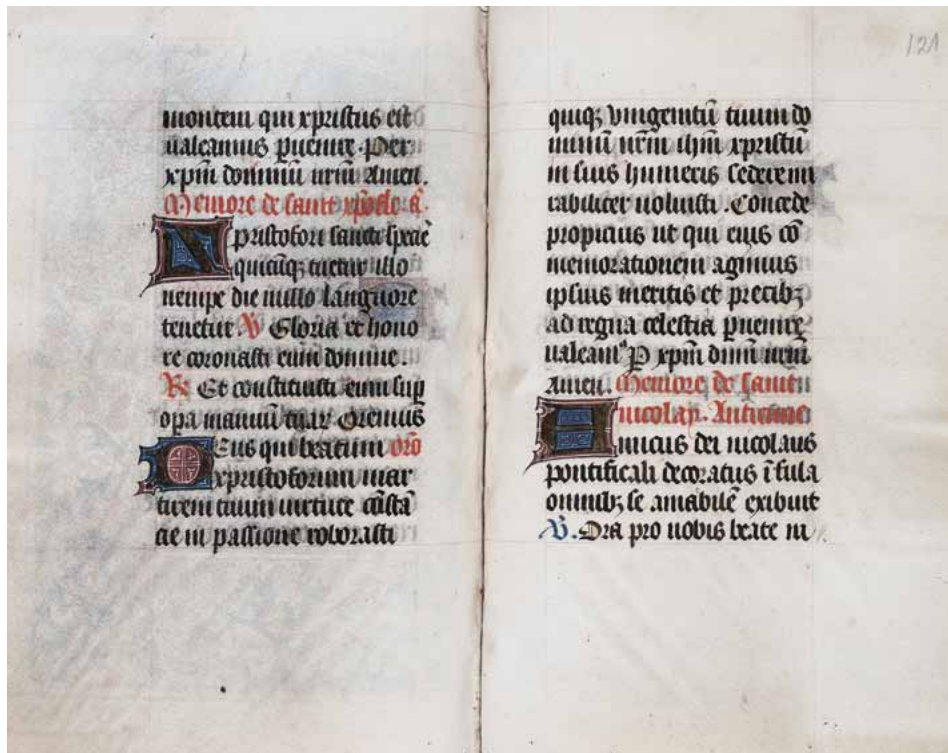 montem qui xpristus est
ualeamus p̱uenire. Per
xp̄m dominū nr̄m Amen.
Memore de saint xp̄ofle a᷎.
Xpristofori sancti speciē
quicūqꝫ tuetur illo
nempe die nullo languore
tenetur. V Gloria et hono
re coronasti eum domine.
R Et constituisti eum sup̄
opa manuū tuar. Oremus
Deus qui beatum or̄o
xpristoforum mar
tirem tuum uirtute cōstā
cie in passione roborasti
121
quiqꝫ vnigenitū tuum do
minū nr̄m ihm̄ xpristū
in suis humeris sedere mi
rabiliter uoluisti. Concede
propicius ut qui eius cō
memorationem agimus
ipsius meritis et precibꝫ
ad regna celestia p̱uenire
ualeamꝰ P̱ xp̄m dn̄m nr̄m
Amen. Memore de saint
nicolay. Antienne
Amicus dei nicolaus
pontificali decoratus īfula
omnibꝫ se amabilē exibuit
V. Ora pro nobis beate ni